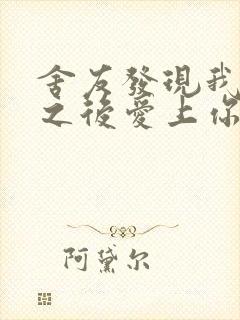 舍友發現我
之後愛上你
阿黛尔